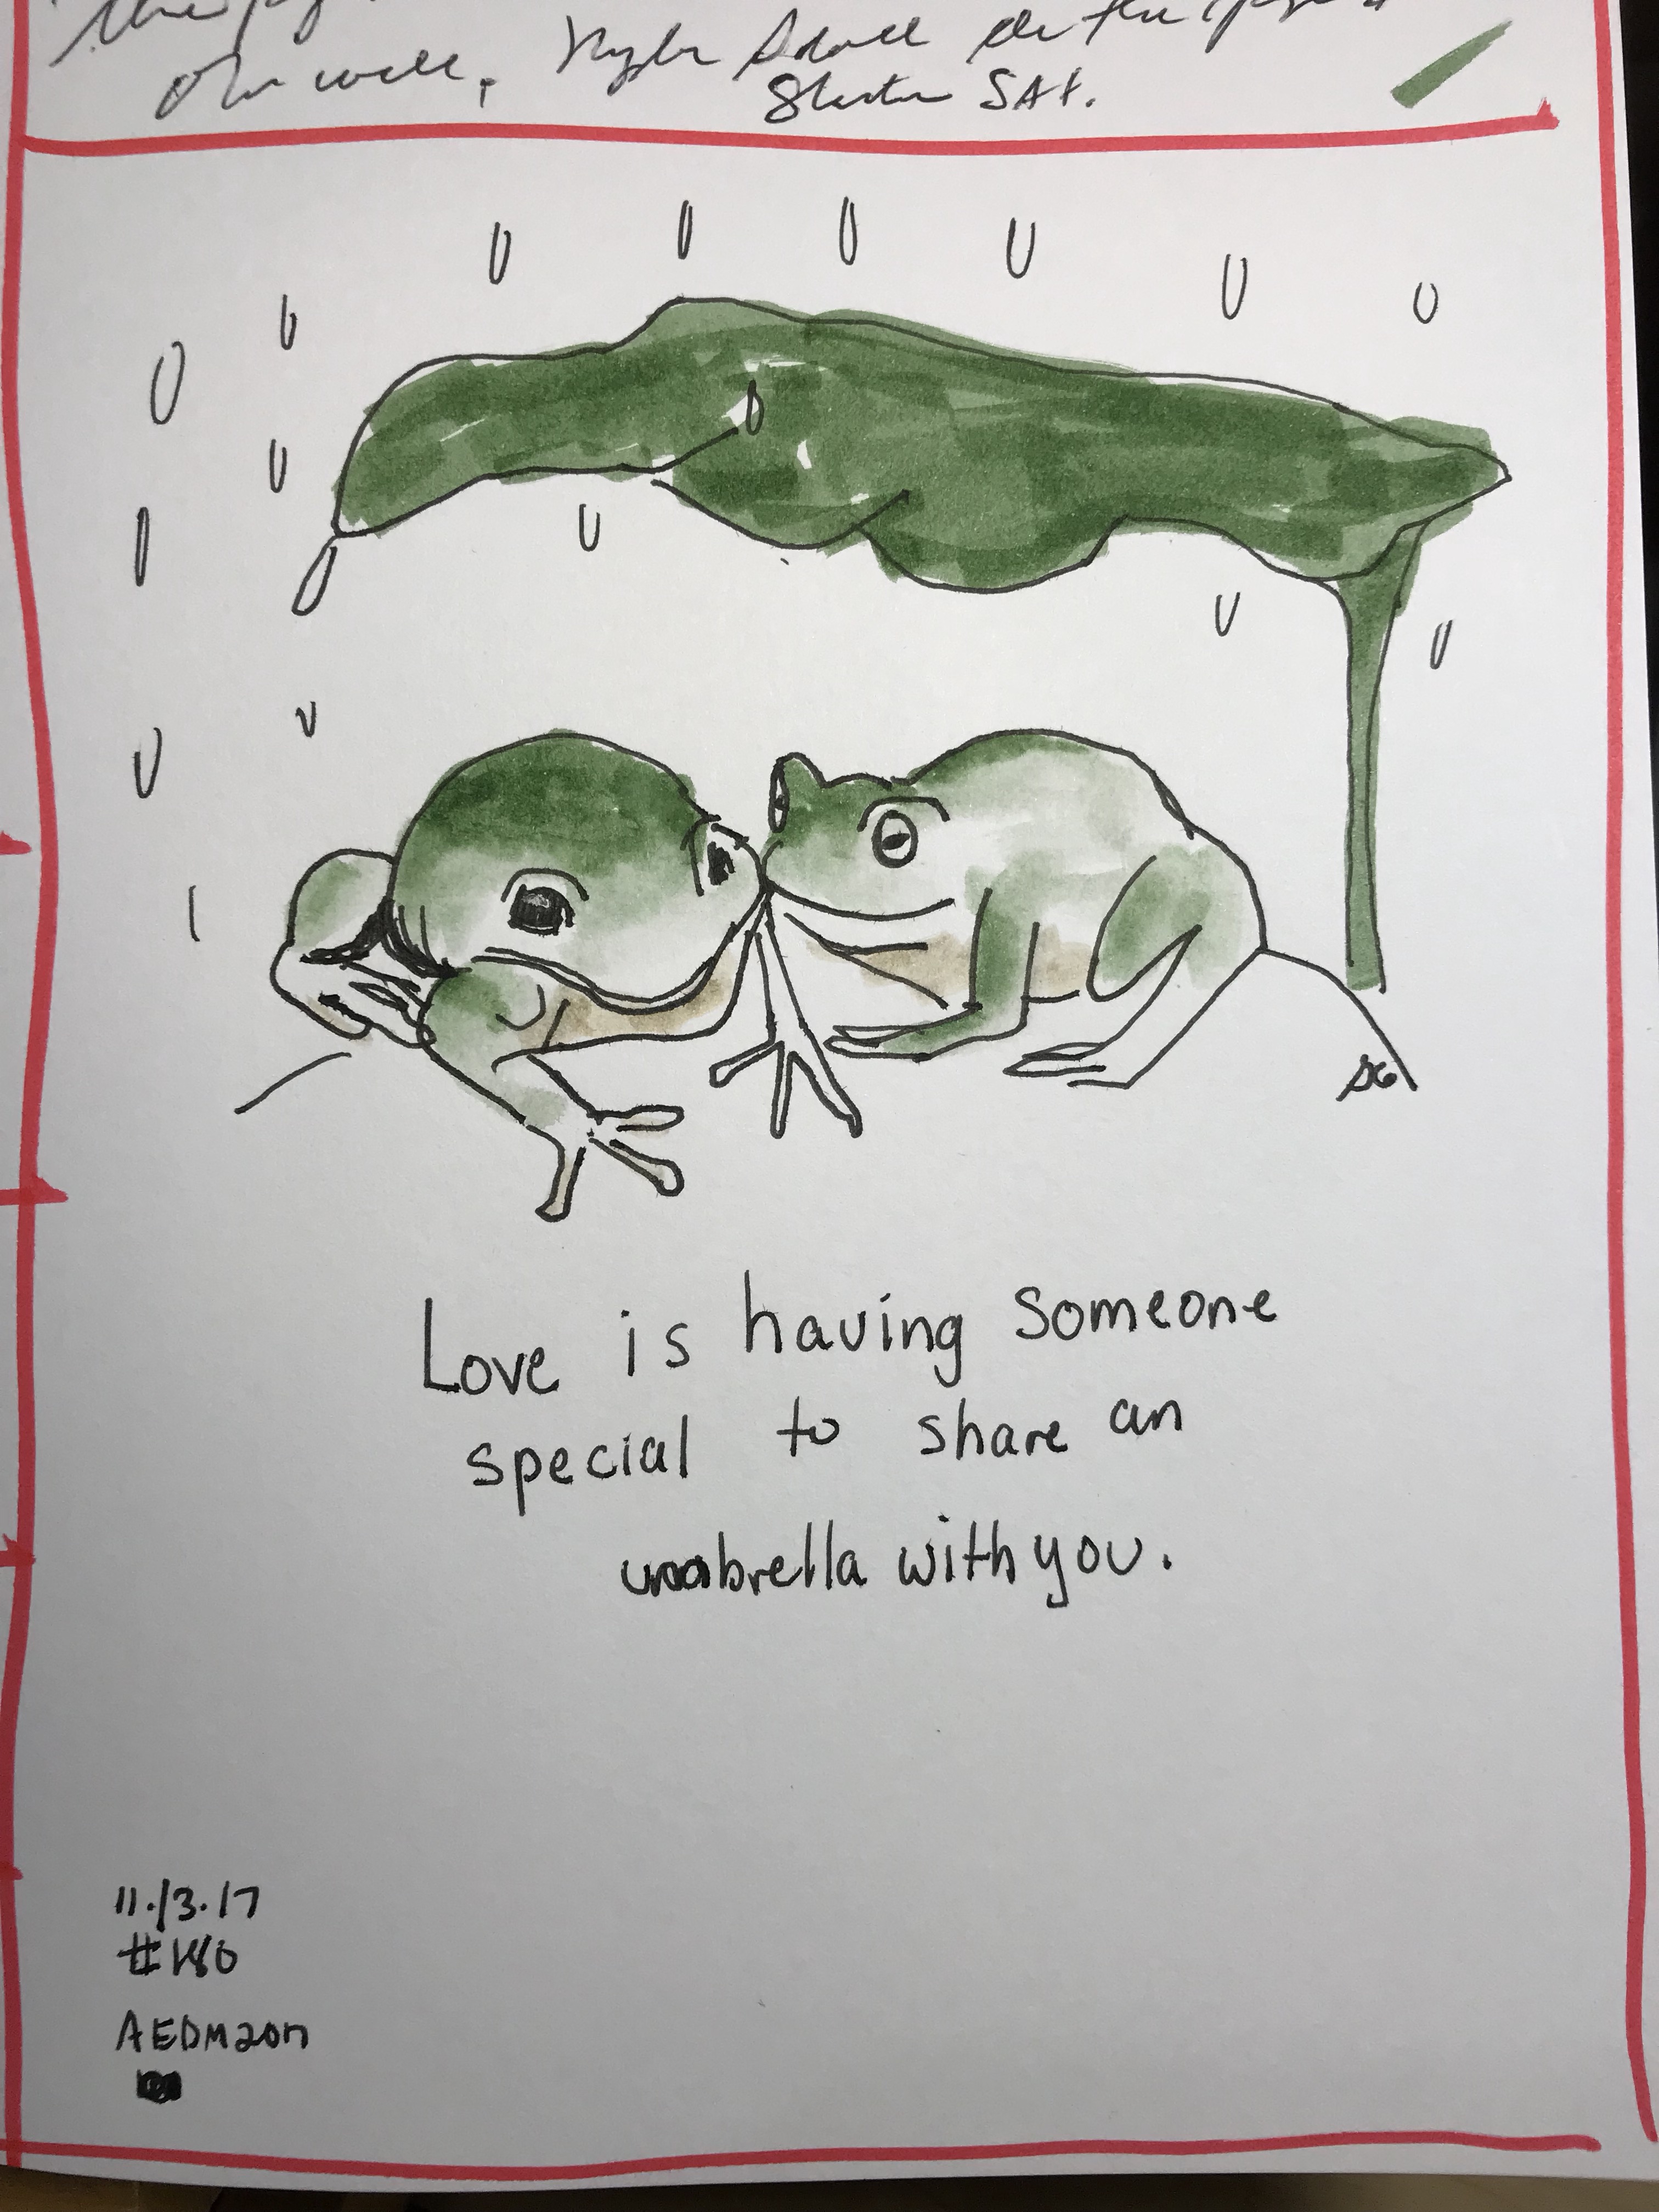 our well.
SAt.
SG
Love is having someone
special to share an
umbrella with you.
11.13.17
#180
AEDM2017